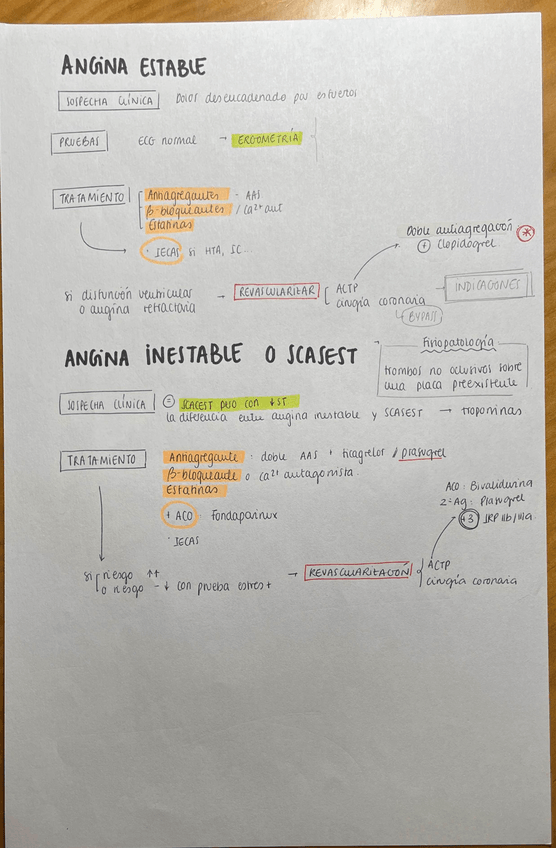 ANGINA ESTABLE
SOSPECHA CLÍNICA Dolor desencadenado por esfuerzos
PRUEBAS ECG normal → ERGOMETRÍA
TRATAMIENTO Antiagregantes - AAS
β-bloqueantes / Ca²⁺ ant
Estatinas
· IECAS si HTA, IC...
Doble antiagregación *
+ Clopidogrel
si disfunción ventricular → REVASCULARIZAR ACTP
o angina refractaria cirugía coronaria
INDICACIONES
BYPASS
ANGINA INESTABLE O SCASEST
Fisiopatología
trombos no oclusivos sobre
una placa preexistente
SOSPECHA CLÍNICA = SCACEST pero con ↓ST
la diferencia entre angina inestable y SCASEST → troponinas
TRATAMIENTO Antiagregante : doble AAS + ticagrelor / prasugrel
β-bloqueante o Ca²⁺ antagonista.
Estatinas
+ ACO · Fondaparinux
· IECAS
ACO : Bivalidurina
2º Ag : Prasugrel
+3 IRP IIb/IIIa
si riesgo ↑↑ → REVASCULARIZACIÓN ACTP
o riesgo - ↓ con prueba estrés + cirugía coronaria